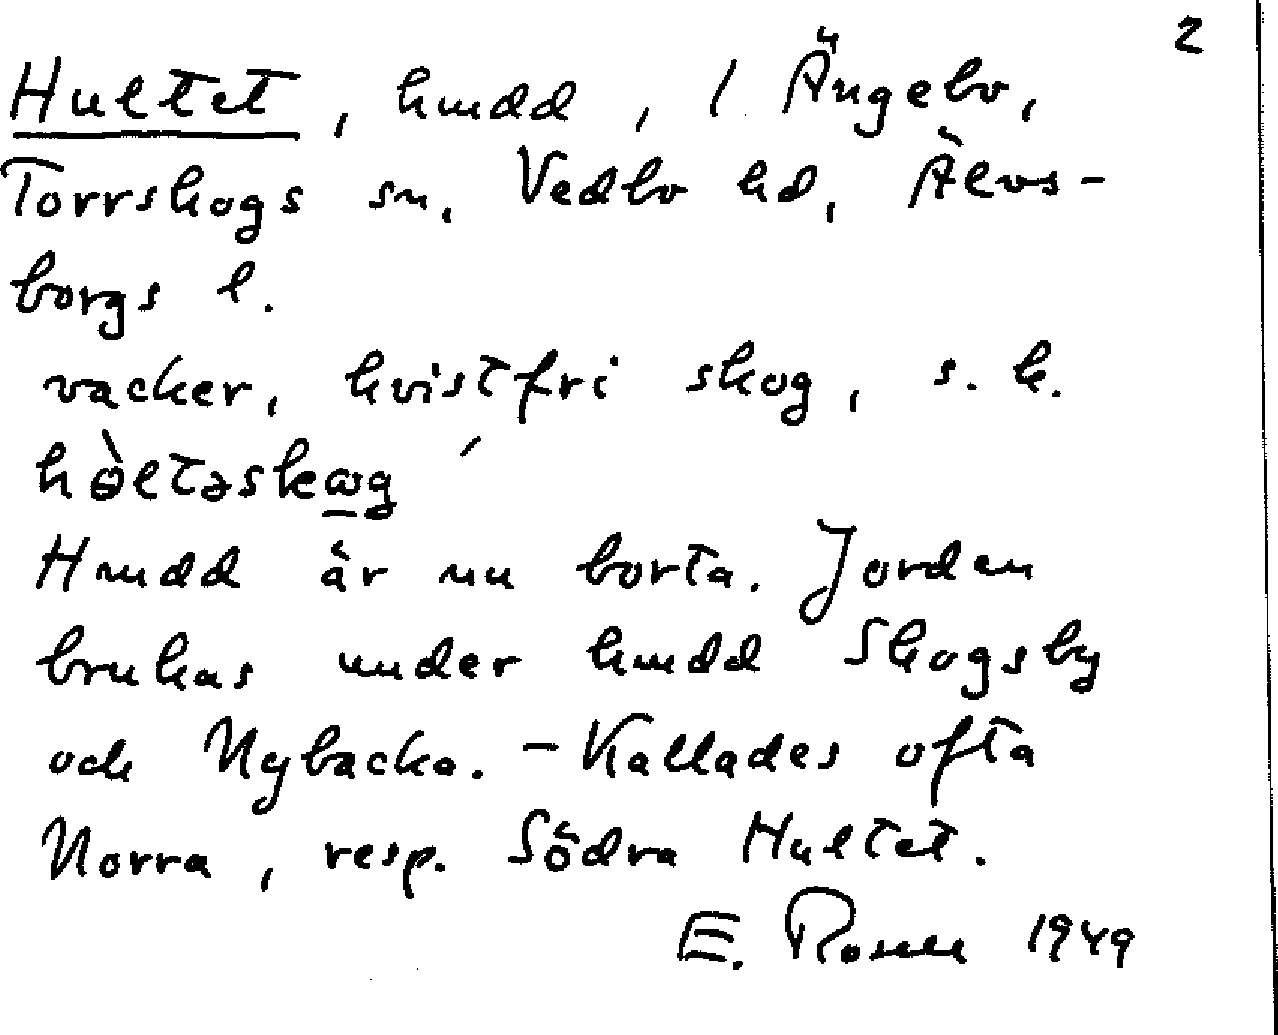 2
Hultet, hmdd, / Ängebo,
Torrskogs sn, Vedbo hd, Älvs-
borgs l.
vacker, kvistfri skog, s. k.
hɵ̀ltəskɷg
Hmdd är nu borta. Jorden
brukas under hmdd Skogsby
och Nybacka. - Kallades ofta
Norra, resp. Södra Hultet.
E. Rosell 1949